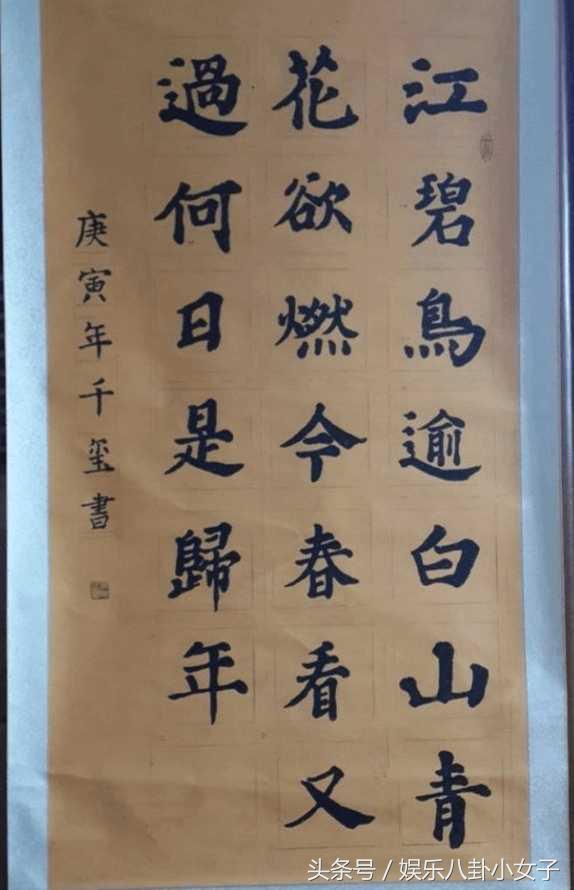 江碧鳥逾白山青
花欲燃今春看又
過何日是歸年
庚寅年千玺書
头条号／娱乐八卦小女子